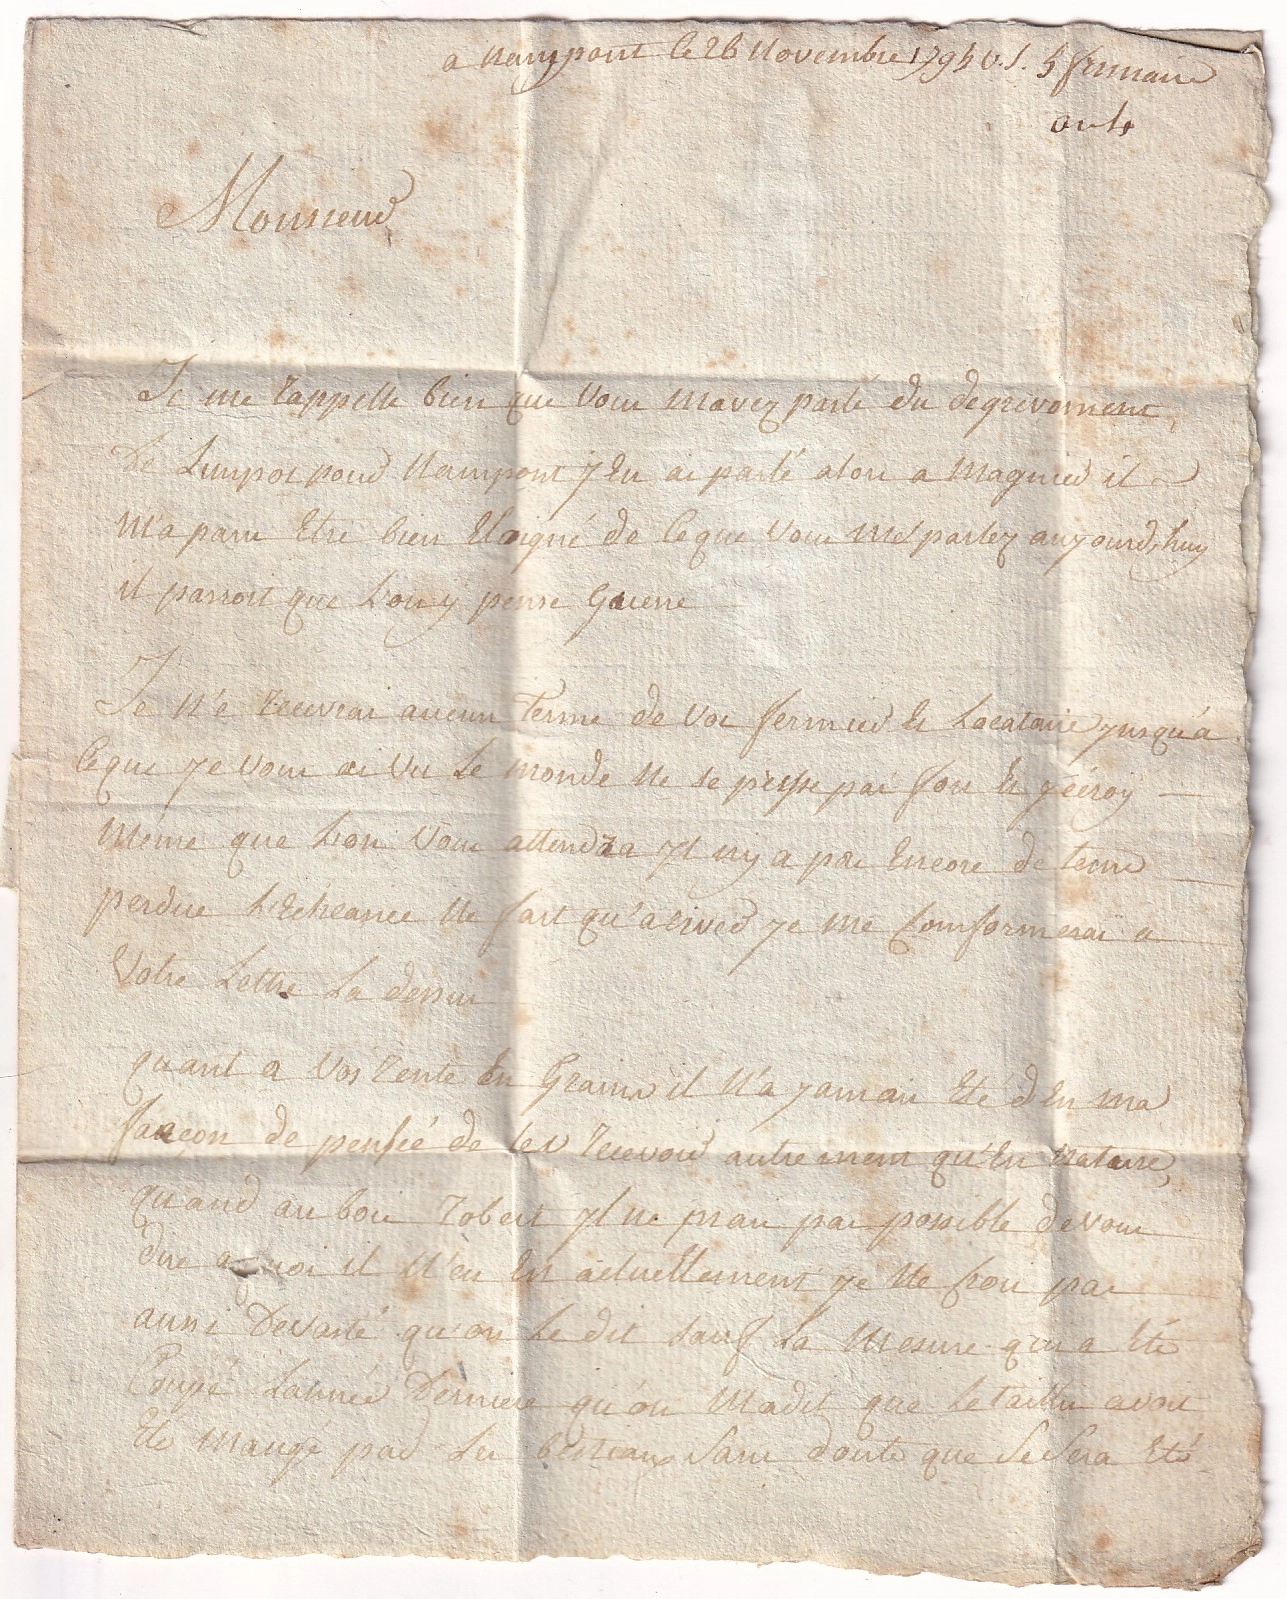 a nampont le 26 Novembre 1795 v.s. 5 frimaire
an 4
Monsieur
Je me rappelle bien que vous mavez parlé du degrevement,
De Limpot pour Nampont j'En ai parlé alors a Magnier il
M'a paru Etre bien Eloigné de Ceque vous me parlez aujourd'huy
il parroit que L'on y pense Guerre
Je N'e recevrai aucun terme de vos fermier Et Locataire jusqu'a
Ceque je vous ai vu Le monde Ne se presse pas fort Et j'écroy
Même que L'on Vous attendra yl ny a pas Encore de tems
perdue L'Echeance Ne fait qu'ariver je me Comformerai a
Votre Lettre La dessus
quant a Vos rente En Grains il N'a jamais Eté d'En ma
facçon de pensée de les recevoir autrement qu'En Nature,
quand au bois robert yl ne m'an pas possible de vous
dire a quoi il N'en Est actuellement je Ne Croi pas
aussi Devasté qu'on Le dit sauf La Mesure qui a Eté
Coupé Lannée Derniere qu'on Madit que Le taillis avoit
Eté Mangé par Les bestiaux sans doute que Se Sera Eté